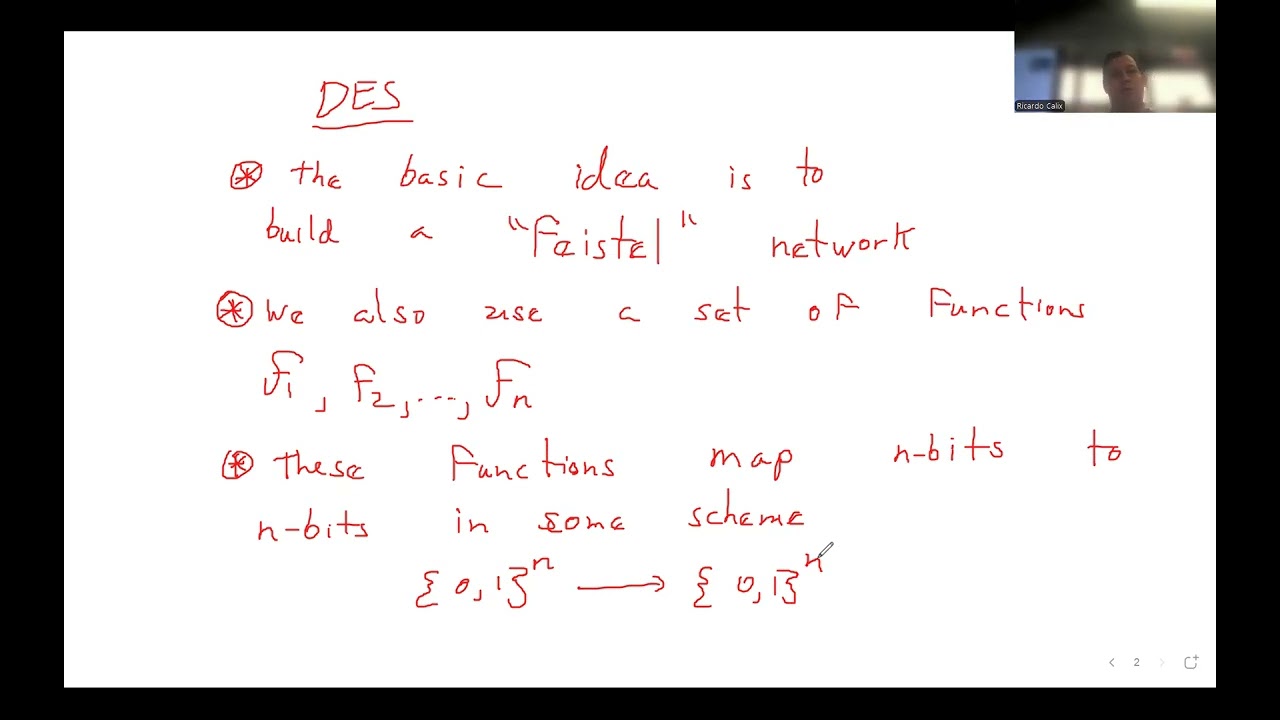 DES
Ricardo Calix
⊛ the basic idea is to
build a "Feistel" network
⊛ we also use a set of functions
f₁, f₂, ..., fₙ
⊛ these functions map n-bits to
n-bits in some scheme
{0,1}ⁿ ⟶ {0,1}ⁿ
2